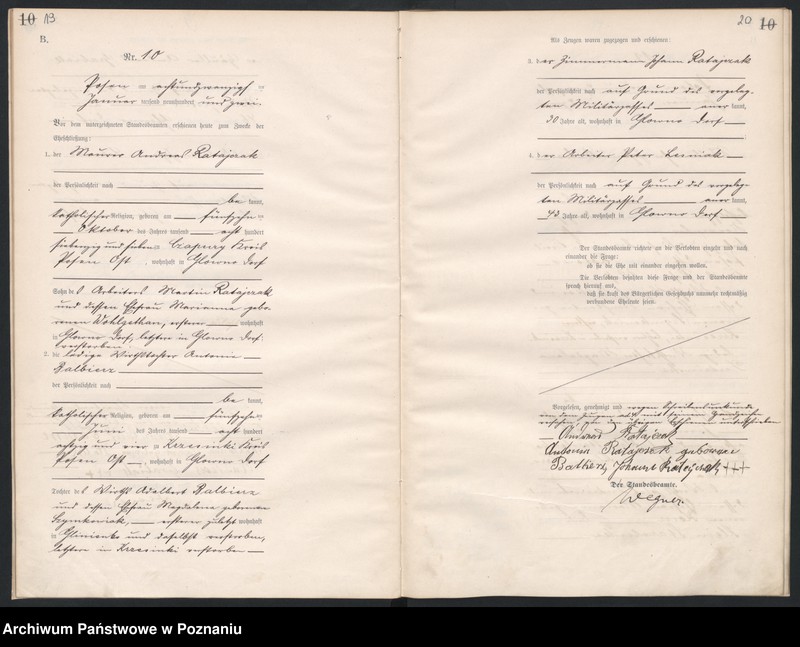 10 13
B.
Nr. 10
Posen am achtundzwanzigsten
Januar tausend neunhundert und zwei.
Vor dem unterzeichneten Standesbeamten erschienen heute zum Zwecke der
Eheschließung:
1. der Maurer Andreas Ratajczak
der Persönlichkeit nach
be kannt,
katholischer Religion, geboren am fünfzehn ten
Oktober des Jahres tausend acht hundert
siebenzig und sieben in Czapury Kreis
Posen Ost, wohnhaft in Glowno Dorf
Sohn des Arbeiters Martin Ratajczak
und dessen Ehefrau Marianna gebo-
renen, ersterer wohnhaft
in Glowno Dorf, letztere in Glowno Dorf
verstorben.
2. die ledige Wirthstochter Antonie
Balbierz
der Persönlichkeit nach
be kannt,
katholischer Religion, geboren am fünfzehn ten
Juni des Jahres tausend acht hundert
achtzig und vier in Krzesinki Kreis
Posen Ost, wohnhaft in Glowno Dorf
Tochter des Wirths Adalbert Balbierz
und dessen Ehefrau Magdalena geborenen
Szymkowiak, ersterer zuletzt wohnhaft
in Glinienko und daselbst verstorben,
letztere in Krzesinki verstorben
20 10
Als Zeugen waren zugezogen und erschienen:
3. der Zimmermann Johann Ratajczak
der Persönlichkeit nach auf Grund des vorgeleg-
ten Militärpasses aner kannt,
30 Jahre alt, wohnhaft in Glowno Dorf
4. der Arbeiter Peter Lesniak
der Persönlichkeit nach auf Grund des vorgeleg-
ten Militärpasses aner kannt,
43 Jahre alt, wohnhaft in Glowno Dorf
Der Standesbeamte richtete an die Verlobten einzeln und nach
einander die Frage:
ob sie die Ehe mit einander eingehen wollen.
Die Verlobten bejahten diese Frage und der Standesbeamte
sprach hierauf aus,
daß sie kraft des Bürgerlichen Gesetzbuchs nunmehr rechtmäßig
verbundene Eheleute seien.
Vorgelesen, genehmigt und wegen Schreibensunkunde
von dem Zeugen mit seinem Handzeichen
versehen, von den übrigen unterschrieben
Andreas Ratajczak
Antonie Ratajczak geborene
Balbierz Johann Ratajczak +++
Der Standesbeamte.
Wegner.
Archiwum Państwowe w Poznaniu